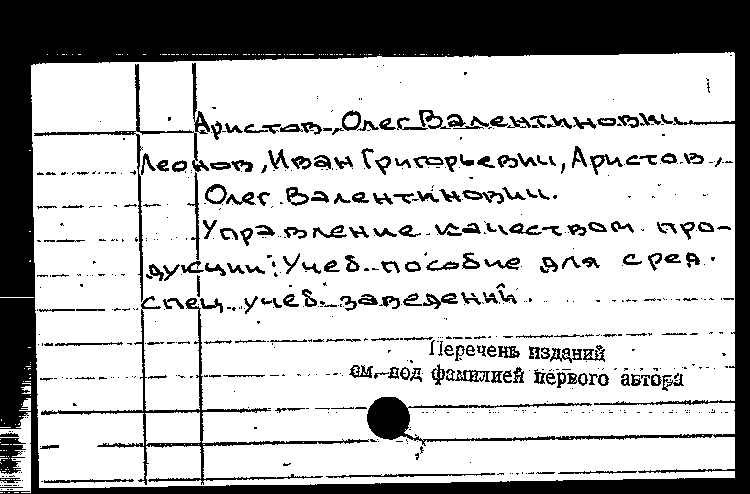 Аристов, Олег Валентинович.
Леонов, Иван Григорьевич, Аристов,
Олег Валентинович.
Управление качеством про-
дукции: Учеб. пособие для сред.
спец. учеб. заведений.
Перечень изданий
см. под фамилией первого автора